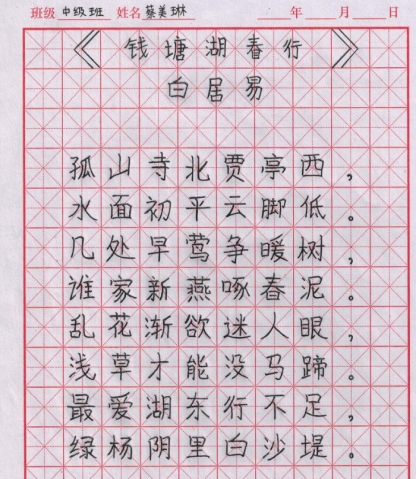 班级 中级班 姓名 蔡美琳 年 月 日
《钱塘湖春行》
白居易
孤山寺北贾亭西，
水面初平云脚低。
几处早莺争暖树，
谁家新燕啄春泥。
乱花渐欲迷人眼，
浅草才能没马蹄。
最爱湖东行不足，
绿杨阴里白沙堤。